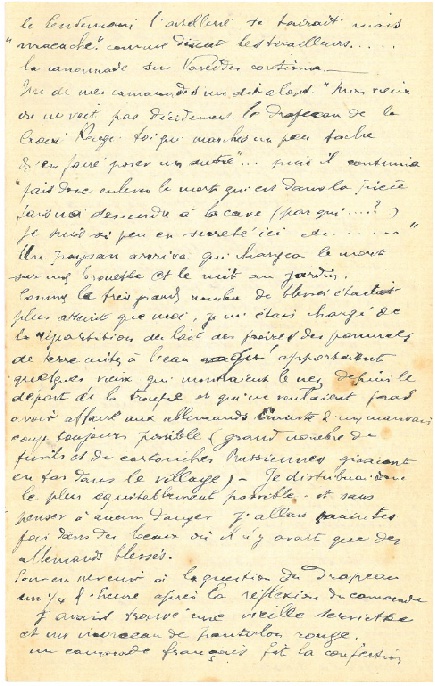 le lendemain l'artillerie se taisait mais
"macache" comme disent les tirailleurs.....
la canonnade sur Varèdes continue
Un de mes camarades me dit alors "Mon vieux
on ne voit pas décidément le drapeau de la
Croix Rouge. Toi qui marches un peu tâche
d'en faire poser un autre"... puis il continua
"fais donc enlever le mort qui est dans la pièce
fais moi descendre à la cave (par qui....?)
Je suis si peu en sûreté ici et......."
Un paysan arriva qui chargea le mort
sur une brouette et le mit au jardin.
Comme le très grand nombre de blessés étaient
plus atteint que moi, je m'étais chargé de
la répartition du lait des poires et des pommes
de terre cuites à l'eau apportaient
quelques vieux qui montraient le nez depuis le
départ de la troupe et qui ne voulaient pas
avoir affaire aux allemands à un mauvais
coup toujours possible (grand nombre de
fusils et de cartouches Prussiennes gisaient
en tas dans le village) - Je distribuai donc
le plus équitablement possible et sans
penser à aucun danger j'allais maintes
fois dans des locaux où il n'y avait que des
allemands blessés.
Pour en revenir à la question du drapeau
un 1/4 d'heure après la réflexion du camarade
j'avais trouvé une vieille serviette
et un morceau de pantalon rouge.
un camarade français fit la confection